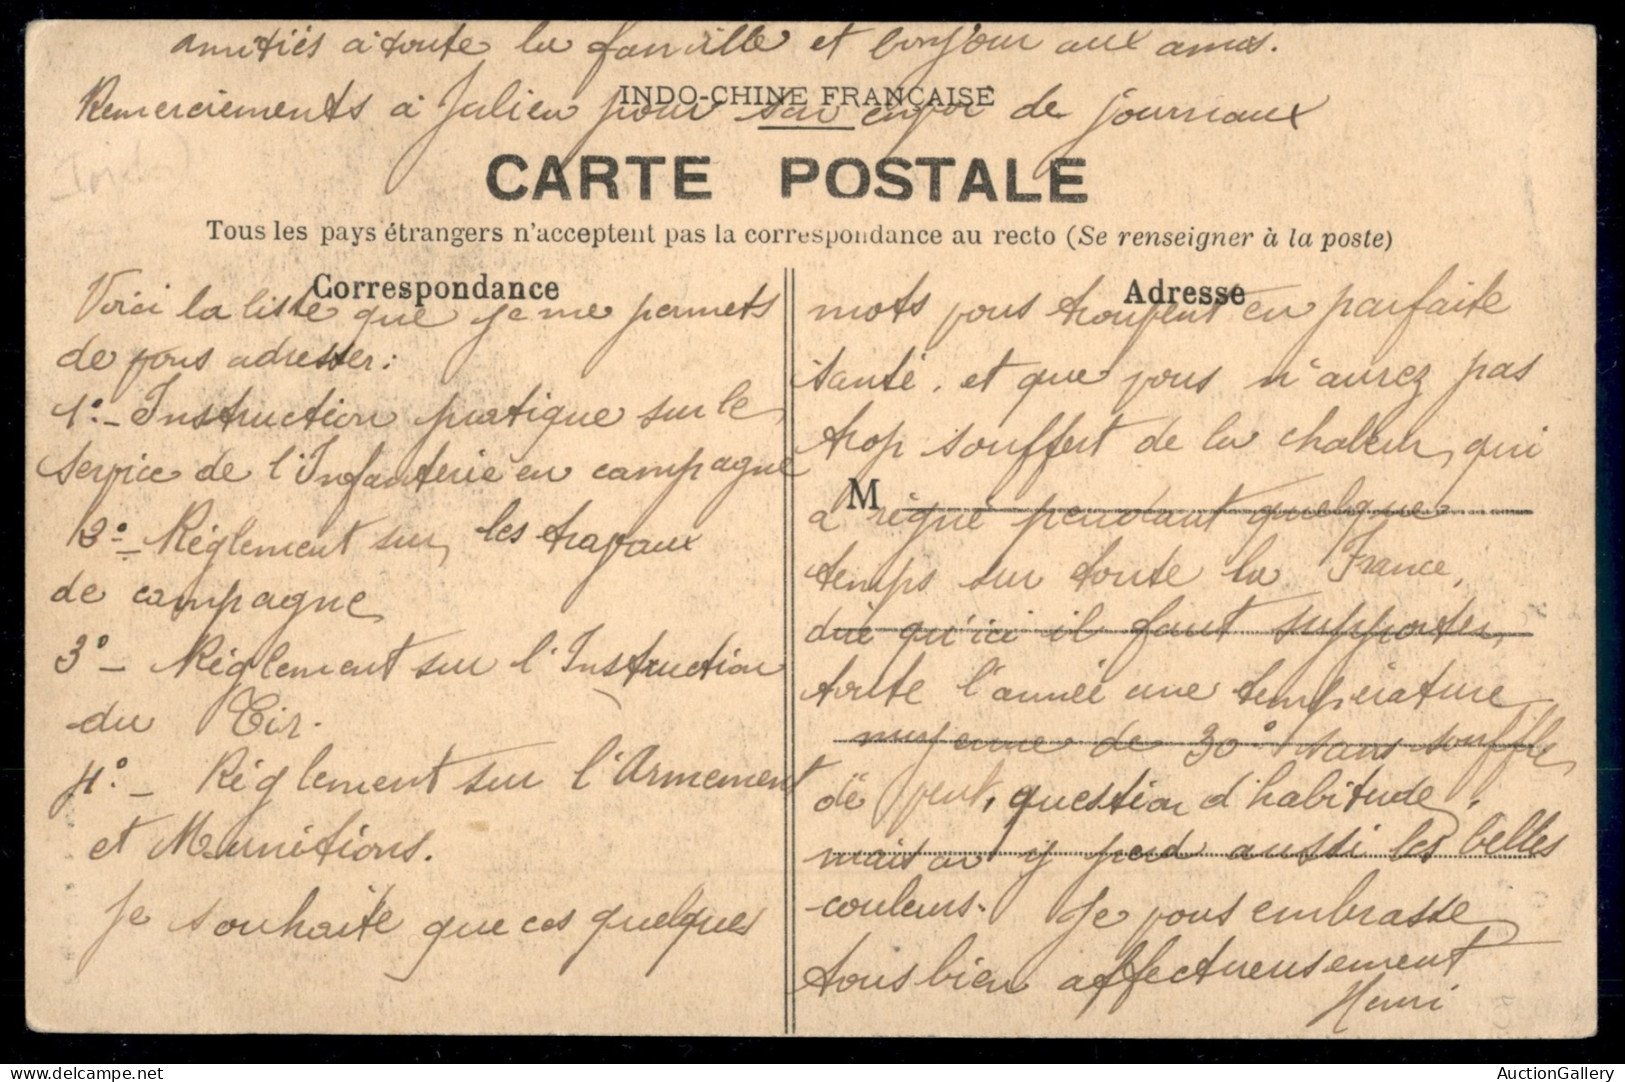 amitiés à toute la famille et bonjour aux amis.
Remerciements à Julien pour son envoi de journaux
INDO-CHINE FRANÇAISE
CARTE POSTALE
Tous les pays étrangers n'acceptent pas la correspondance au recto (Se renseigner à la poste)
Correspondance
Voici la liste que je me permets
de vous adresser:
1°- Instruction pratique sur le
Service de l'Infanterie en campagne
2°- Réglement sur les travaux
de campagne
3°- Réglement sur l'Instruction
du Tir.
4°- Réglement sur l'Armement
et Munitions.
Je souhaite que ces quelques
Adresse
mots vous trouvent en parfaite
santé. et que vous n'aurez pas
trop souffert de la chaleur, qui
M
a régné pendant quelque
temps sur toute la France,
dire qu'ici il faut supporter,
toute l'année une température
moyenne de 30° sans souffle
de vent, question d'habitude,
mais on y perd aussi les belles
couleurs. Je vous embrasse
tous bien affectueusement
Henri
AuctionGallery